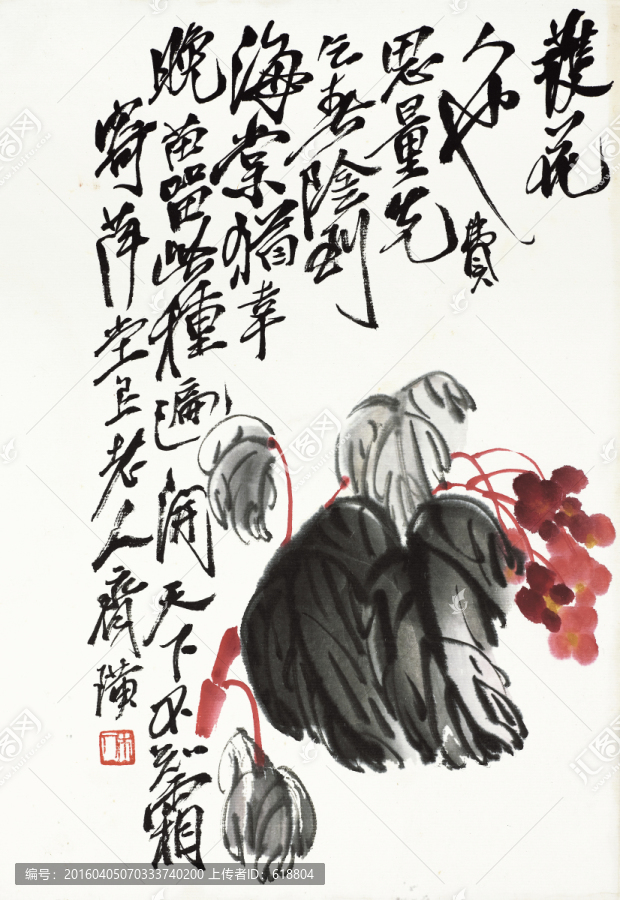 護花
人也費
思量先
乞春陰到
海棠猶幸
晚苗畱此種遍開天下不知霜
寄萍堂上老人齊璜
编号：20160405070333740200 上传者ID：618804